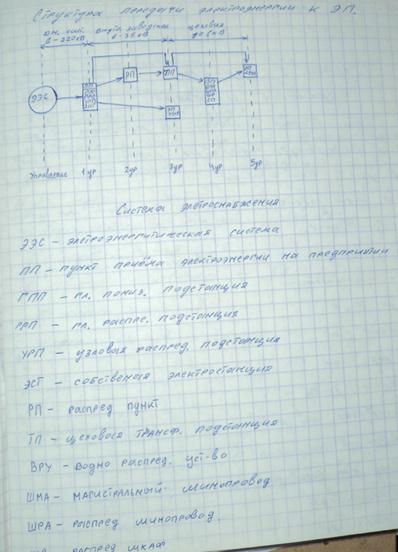 Структура передачи электроэнергии к ЭП.
6-220кВ
6-35кВ
до 1кВ
ЭЭС
РП
ТП
1ур 2ур 3ур 4ур 5ур
Система элетроснабжения
ЭЭС - элетроэнергитическая система
ПП - пункт приёма электроэнергии на предприятии
ГПП - гл. пониз. подстанция
ГРП - гл. распре. подстанция
УРП - узловая распред. подстанция
ЭСТ - собственая электростанция
РП - распред пункт
ТП - цеховая трансф. подстанция
ВРУ - водно распред. уст-во
ШМА - магистральный шинопровод
ШРА - распред шинопровод.
распред шкаф